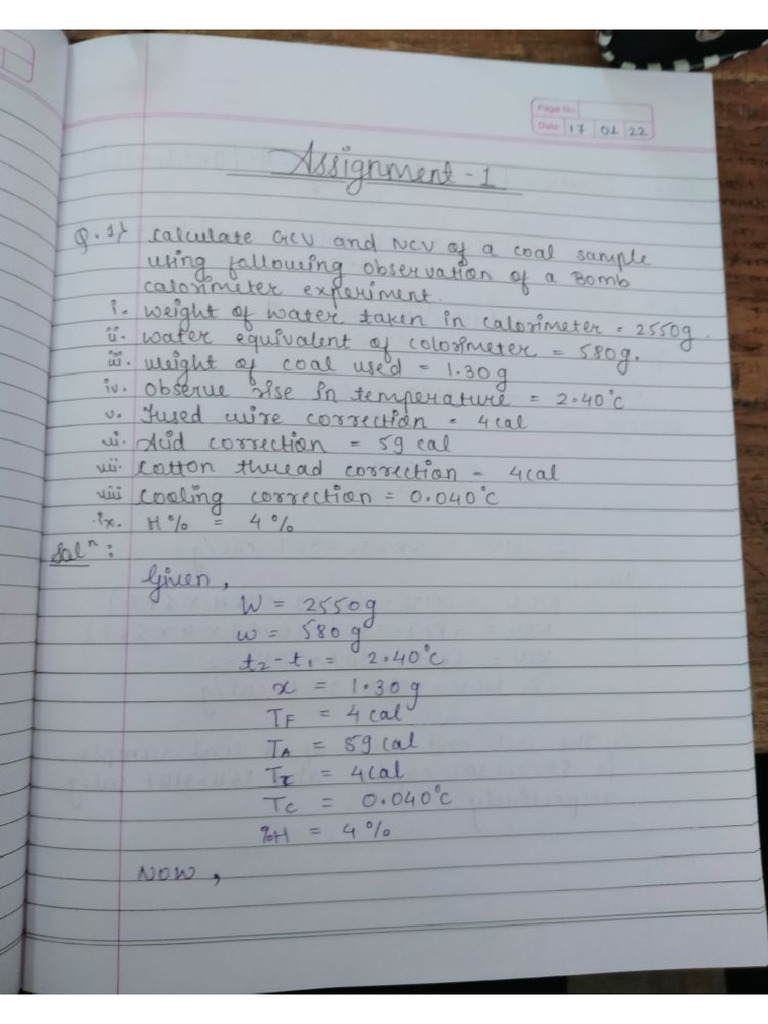 Page No
Date 17 01 22
Assignment - 1
Q.1} Calculate GCV and NCV of a coal sample
using following observation of a Bomb
calorimeter experiment.
i. weight of water taken in calorimeter = 2550g.
ii. water equivalent of colorimeter = 580g.
iii. weight of coal used = 1.30g
iv. Observe rise in temperature = 2.40°C
v. Fused wire correction = 4cal
vi. Acid correction = 59 cal
vii. Cotton thread correction = 4cal
viii Cooling correction = 0.040°C
ix. H% = 4%
Solⁿ:
Given,
W = 2550g
w = 580g
t₂-t₁ = 2.40°C
x = 1.30g
TF = 4cal
TA = 59 cal
= 4cal
TC = 0.040°C
%H = 4%
Now,